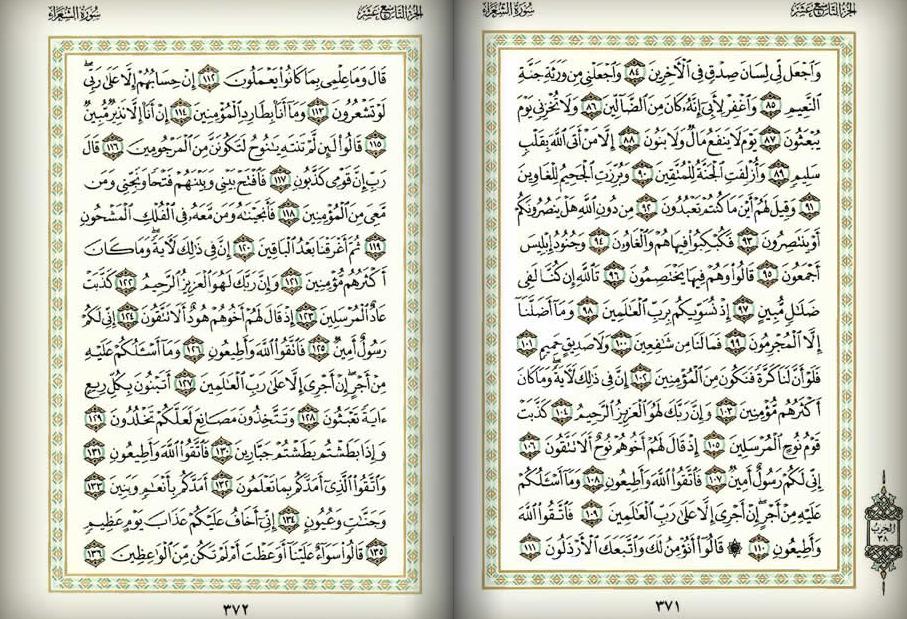 الجزء التاسع عشر
سورة الشعراء
وَٱجْعَل لِّى لِسَانَ صِدْقٍ فِى ٱلْأَخِرِينَ ٨٤ وَٱجْعَلْنِى مِن وَرَثَةِ جَنَّةِ
ٱلنَّعِيمِ ٨٥ وَٱغْفِرْ لِأَبِىٓ إِنَّهُۥ كَانَ مِنَ ٱلضَّآلِّينَ ٨٦ وَلَا تُخْزِنِى يَوْمَ
يُبْعَثُونَ ٨٧ يَوْمَ لَا يَنفَعُ مَالٌ وَلَا بَنُونَ ٨٨ إِلَّا مَنْ أَتَى ٱللَّهَ بِقَلْبٍ
سَلِيمٍ ٨٩ وَأُزْلِفَتِ ٱلْجَنَّةُ لِلْمُتَّقِينَ ٩٠ وَبُرِّزَتِ ٱلْجَحِيمُ لِلْغَاوِينَ
٩١ وَقِيلَ لَهُمْ أَيْنَ مَا كُنتُمْ تَعْبُدُونَ ٩٢ مِن دُونِ ٱللَّهِ هَلْ يَنصُرُونَكُمْ
أَوْ يَنتَصِرُونَ ٩٣ فَكُبْكِبُوا۟ فِيهَا هُمْ وَٱلْغَاوُۥنَ ٩٤ وَجُنُودُ إِبْلِيسَ
أَجْمَعُونَ ٩٥ قَالُوا۟ وَهُمْ فِيهَا يَخْتَصِمُونَ ٩٦ تَٱللَّهِ إِن كُنَّا لَفِى
ضَلَٰلٍ مُّبِينٍ ٩٧ إِذْ نُسَوِّيكُم بِرَبِّ ٱلْعَٰلَمِينَ ٩٨ وَمَآ أَضَلَّنَآ
إِلَّا ٱلْمُجْرِمُونَ ٩٩ فَمَا لَنَا مِن شَٰفِعِينَ ١٠٠ وَلَا صَدِيقٍ حَمِيمٍ ١٠١
فَلَوْ أَنَّ لَنَا كَرَّةً فَنَكُونَ مِنَ ٱلْمُؤْمِنِينَ ١٠٢ إِنَّ فِى ذَٰلِكَ لَءَايَةً ۖ وَمَا كَانَ
أَكْثَرُهُم مُّؤْمِنِينَ ١٠٣ وَإِنَّ رَبَّكَ لَهُوَ ٱلْعَزِيزُ ٱلرَّحِيمُ ١٠٤ كَذَّبَتْ
قَوْمُ نُوحٍ ٱلْمُرْسَلِينَ ١٠٥ إِذْ قَالَ لَهُمْ أَخُوهُمْ نُوحٌ أَلَا تَتَّقُونَ ١٠٦
إِنِّى لَكُمْ رَسُولٌ أَمِينٌ ١٠٧ فَٱتَّقُوا۟ ٱللَّهَ وَأَطِيعُونِ ١٠٨ وَمَآ أَسْـَٔلُكُمْ
عَلَيْهِ مِنْ أَجْرٍ ۖ إِنْ أَجْرِىَ إِلَّا عَلَىٰ رَبِّ ٱلْعَٰلَمِينَ ١٠٩ فَٱتَّقُوا۟ ٱللَّهَ
وَأَطِيعُونِ ١١٠ ۞ قَالُوٓا۟ أَنُؤْمِنُ لَكَ وَٱتَّبَعَكَ ٱلْأَرْذَلُونَ ١١١
الحزب
٣٨
٣٧١
الجزء التاسع عشر
سورة الشعراء
قَالَ وَمَا عِلْمِى بِمَا كَانُوا۟ يَعْمَلُونَ ١١٢ إِنْ حِسَابُهُمْ إِلَّا عَلَىٰ رَبِّى ۖ
لَوْ تَشْعُرُونَ ١١٣ وَمَآ أَنَا۠ بِطَارِدِ ٱلْمُؤْمِنِينَ ١١٤ إِنْ أَنَا۠ إِلَّا نَذِيرٌ مُّبِينٌ
١١٥ قَالُوا۟ لَئِن لَّمْ تَنتَهِ يَٰنُوحُ لَتَكُونَنَّ مِنَ ٱلْمَرْجُومِينَ ١١٦ قَالَ
رَبِّ إِنَّ قَوْمِى كَذَّبُونِ ١١٧ فَٱفْتَحْ بَيْنِى وَبَيْنَهُمْ فَتْحًا وَنَجِّنِى وَمَن
مَّعِىَ مِنَ ٱلْمُؤْمِنِينَ ١١٨ فَأَنجَيْنَٰهُ وَمَن مَّعَهُۥ فِى ٱلْفُلْكِ ٱلْمَشْحُونِ
١١٩ ثُمَّ أَغْرَقْنَا بَعْدُ ٱلْبَاقِينَ ١٢٠ إِنَّ فِى ذَٰلِكَ لَءَايَةً ۖ وَمَا كَانَ
أَكْثَرُهُم مُّؤْمِنِينَ ١٢١ وَإِنَّ رَبَّكَ لَهُوَ ٱلْعَزِيزُ ٱلرَّحِيمُ ١٢٢ كَذَّبَتْ
عَادٌ ٱلْمُرْسَلِينَ ١٢٣ إِذْ قَالَ لَهُمْ أَخُوهُمْ هُودٌ أَلَا تَتَّقُونَ ١٢٤ إِنِّى لَكُمْ
رَسُولٌ أَمِينٌ ١٢٥ فَٱتَّقُوا۟ ٱللَّهَ وَأَطِيعُونِ ١٢٦ وَمَآ أَسْـَٔلُكُمْ عَلَيْهِ
مِنْ أَجْرٍ ۖ إِنْ أَجْرِىَ إِلَّا عَلَىٰ رَبِّ ٱلْعَٰلَمِينَ ١٢٧ أَتَبْنُونَ بِكُلِّ رِيعٍ
ءَايَةً تَعْبَثُونَ ١٢٨ وَتَتَّخِذُونَ مَصَانِعَ لَعَلَّكُمْ تَخْلُدُونَ ١٢٩
وَإِذَا بَطَشْتُم بَطَشْتُمْ جَبَّارِينَ ١٣٠ فَٱتَّقُوا۟ ٱللَّهَ وَأَطِيعُونِ ١٣١
وَٱتَّقُوا۟ ٱلَّذِىٓ أَمَدَّكُم بِمَا تَعْلَمُونَ ١٣٢ أَمَدَّكُم بِأَنْعَٰمٍ وَبَنِينَ ١٣٣
وَجَنَّٰتٍ وَعُيُونٍ ١٣٤ إِنِّىٓ أَخَافُ عَلَيْكُمْ عَذَابَ يَوْمٍ عَظِيمٍ
١٣٥ قَالُوا۟ سَوَآءٌ عَلَيْنَآ أَوَعَظْتَ أَمْ لَمْ تَكُن مِّنَ ٱلْوَٰعِظِينَ ١٣٦
٣٧٢